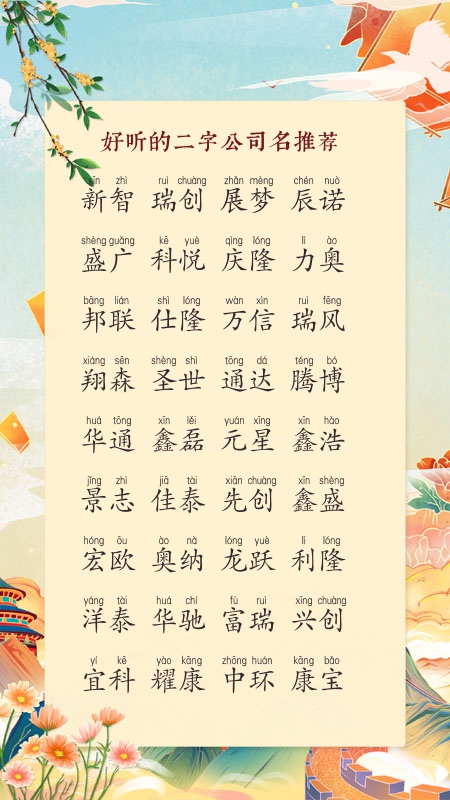 好听的二字公司名推荐
xīn zhì ruì chuàng zhǎn mèng chén nuò
新智 瑞创 展梦 辰诺
shèng guǎng kē yuè qìng lóng lì ào
盛广 科悦 庆隆 力奥
bāng lián shì lóng wàn xìn ruì fēng
邦联 仕隆 万信 瑞风
xiáng sēn shèng shì tōng dá téng bó
翔森 圣世 通达 腾博
huá tōng xīn lěi yuán xīng xīn hào
华通 鑫磊 元星 鑫浩
jǐng zhì jiā tài xiān chuàng xīn shèng
景志 佳泰 先创 鑫盛
hóng ōu ào nà lóng yuè lì lóng
宏欧 奥纳 龙跃 利隆
yáng tài huá chí fù ruì xīng chuàng
洋泰 华驰 富瑞 兴创
yí kē yào kāng zhōng huán kāng bǎo
宜科 耀康 中环 康宝